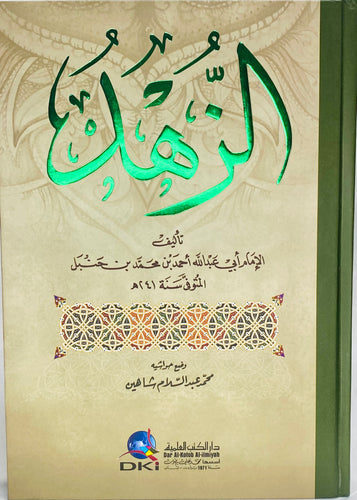 الزُّهْدُ
تأليف
الإمام أبي عبدالله أحمد بن محمد بن حنبل
المتوفى سنة ٢٤١هـ
وضع حواشيه
محمد عبد السلام شاهين
دار الكتب العلمية
Dar Al-Kotob Al-ilmiyah
DKi